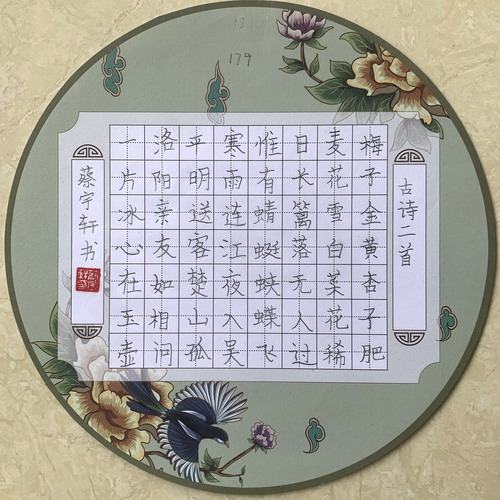 18
179
古诗二首
梅子金黄杏子肥
麦花雪白菜花稀
日长篱落无人过
惟有蜻蜓蛱蝶飞
寒雨连江夜入吴
平明送客楚山孤
洛阳亲友如相问
一片冰心在玉壶
蔡宇轩书